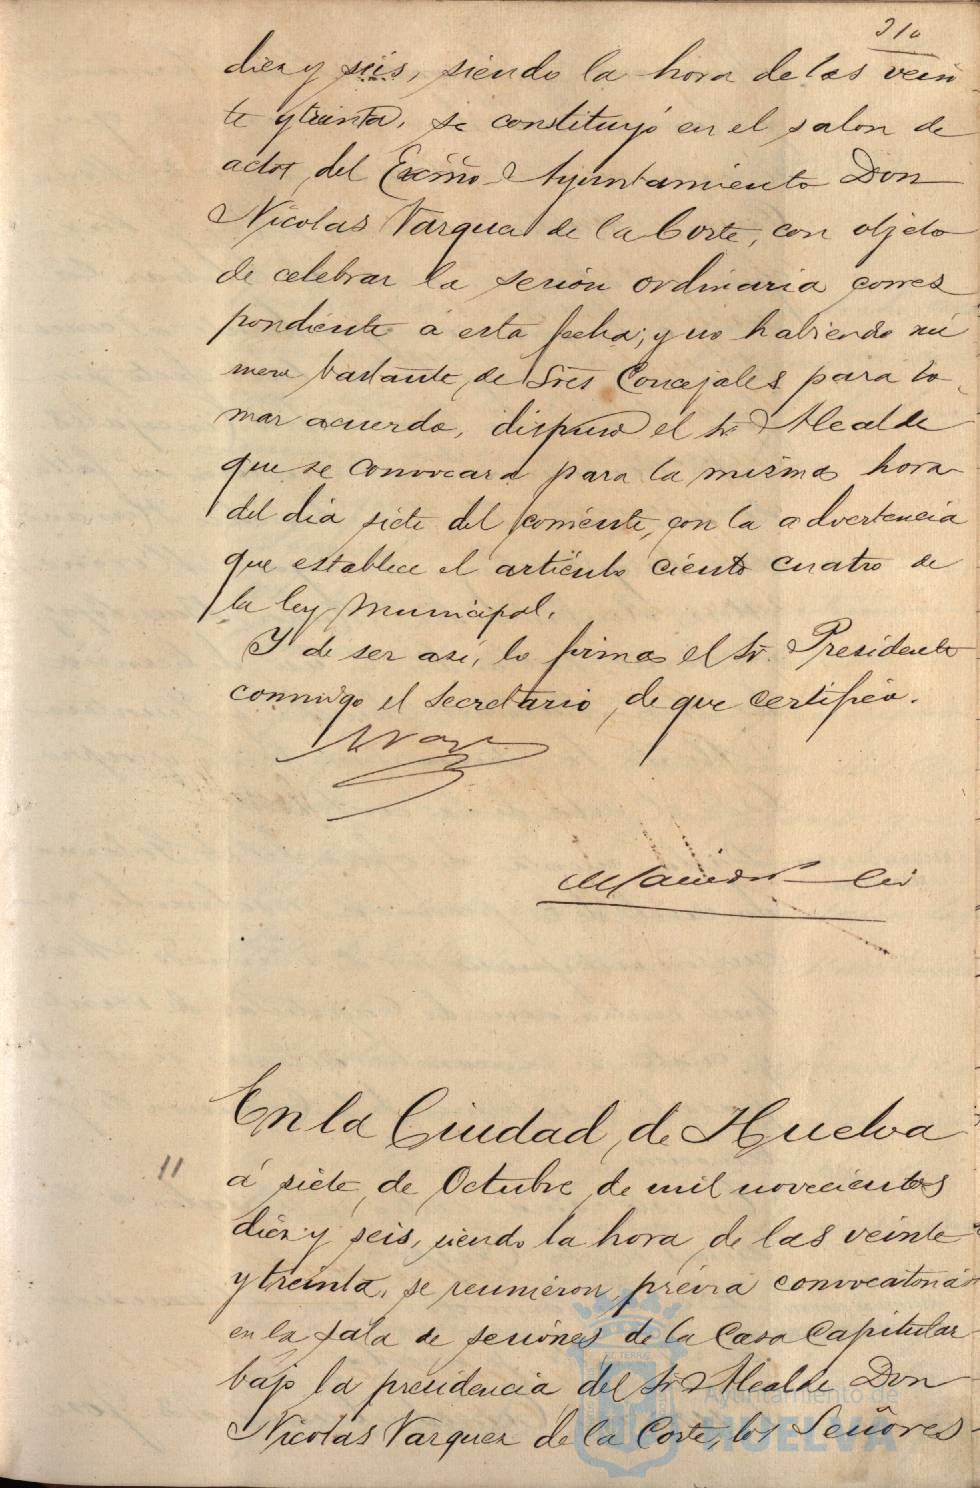 210
diez y seis, siendo la hora de las vein
te y treinta, se constituyó en el salon de
actos del Excmo. Ayuntamiento Don
Nicolas Vazquez de la Corte, con objeto
de celebrar la sesión ordinaria corres
pondiente á esta fecha; y no habiendo nú
mero bastante de Sres Concejales para to
mar acuerdo, dispuso el Sr. Alcalde
que se convocara para la misma hora
del dia siete del corriente, con la advertencia
que establece el artículo ciento cuatro de
la ley Municipal.
Y de ser así, lo firma el Sr. Presidente
conmigo el Secretario, de que certifico.
En la Ciudad de Huelva
11
á siete de Octubre de mil novecientos
diez y seis, siendo la hora de las veinte
y treinta, se reunieron, prévia convocatoria
en la sala de sesiones de la Casa Capitular
bajo la presidencia del Sr. Alcalde Don
Nicolas Vazquez de la Corte, los Señores
Ayuntamiento de
HUELVA